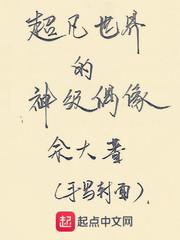 超凡世界
的
神级偶像
佘大書
(手写封面)
起
起点中文网